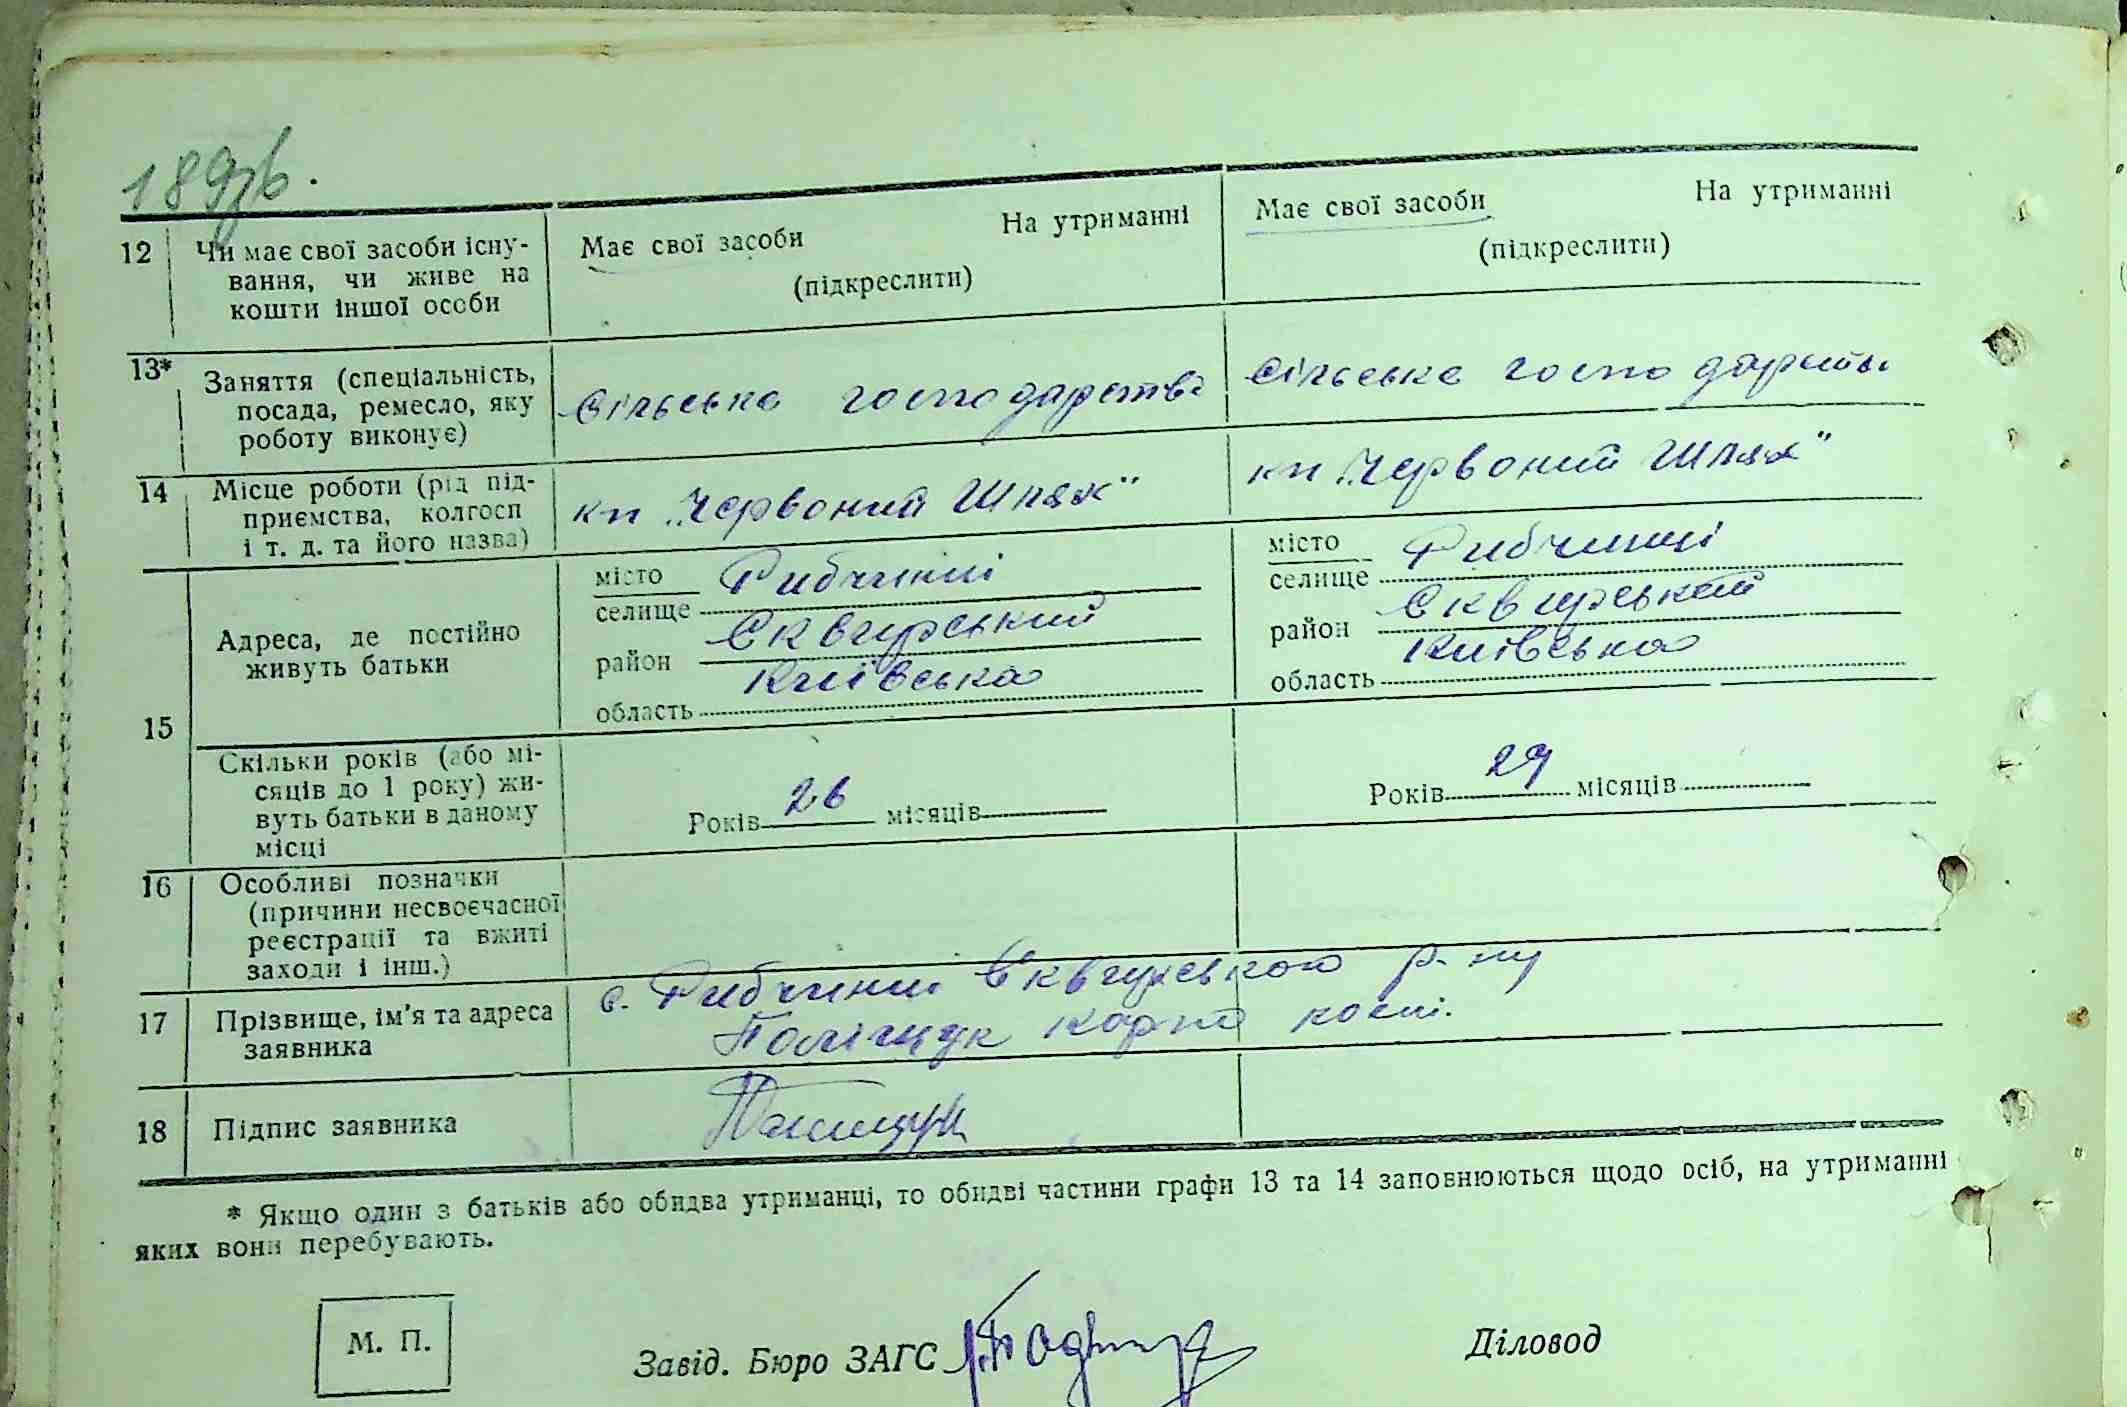 189зв.
12 Чи має свої засоби існу-
вання, чи живе на
кошти іншої особи
Має свої засоби На утриманні
(підкреслити)
Має свої засоби На утриманні
(підкреслити)
13* Заняття (спеціальність,
посада, ремесло, яку
роботу виконує)
Сільське господарстві
Сільське господарстві
14 Місце роботи (рід під-
приємства, колгосп
і т. д. та його назва)
кп „Червоний Шлях"
кп „Червоний Шлях"
15 Адреса, де постійно
живуть батьки
місто Рибчинці
селище
район Сквирський
область Київська
місто Рибчинці
селище
район Сквирський
область Київська
Скільки років (або мі-
сяців до 1 року) жи-
вуть батьки в даному
місці
Років 26 місяців
Років 29 місяців
16 Особливі позначки
(причини несвоєчасної
реєстрації та вжиті
заходи і інш.)
17 Прізвище, ім'я та адреса
заявника
с. Рибчинці Сквирського р-ну
Поліщук Карпо
18 Підпис заявника
* Якщо один з батьків або обидва утриманці, то обидві частини графи 13 та 14 заповнюються щодо осіб, на утриманні
яких вони перебувають.
М. П.
Завід. Бюро ЗАГС
Діловод